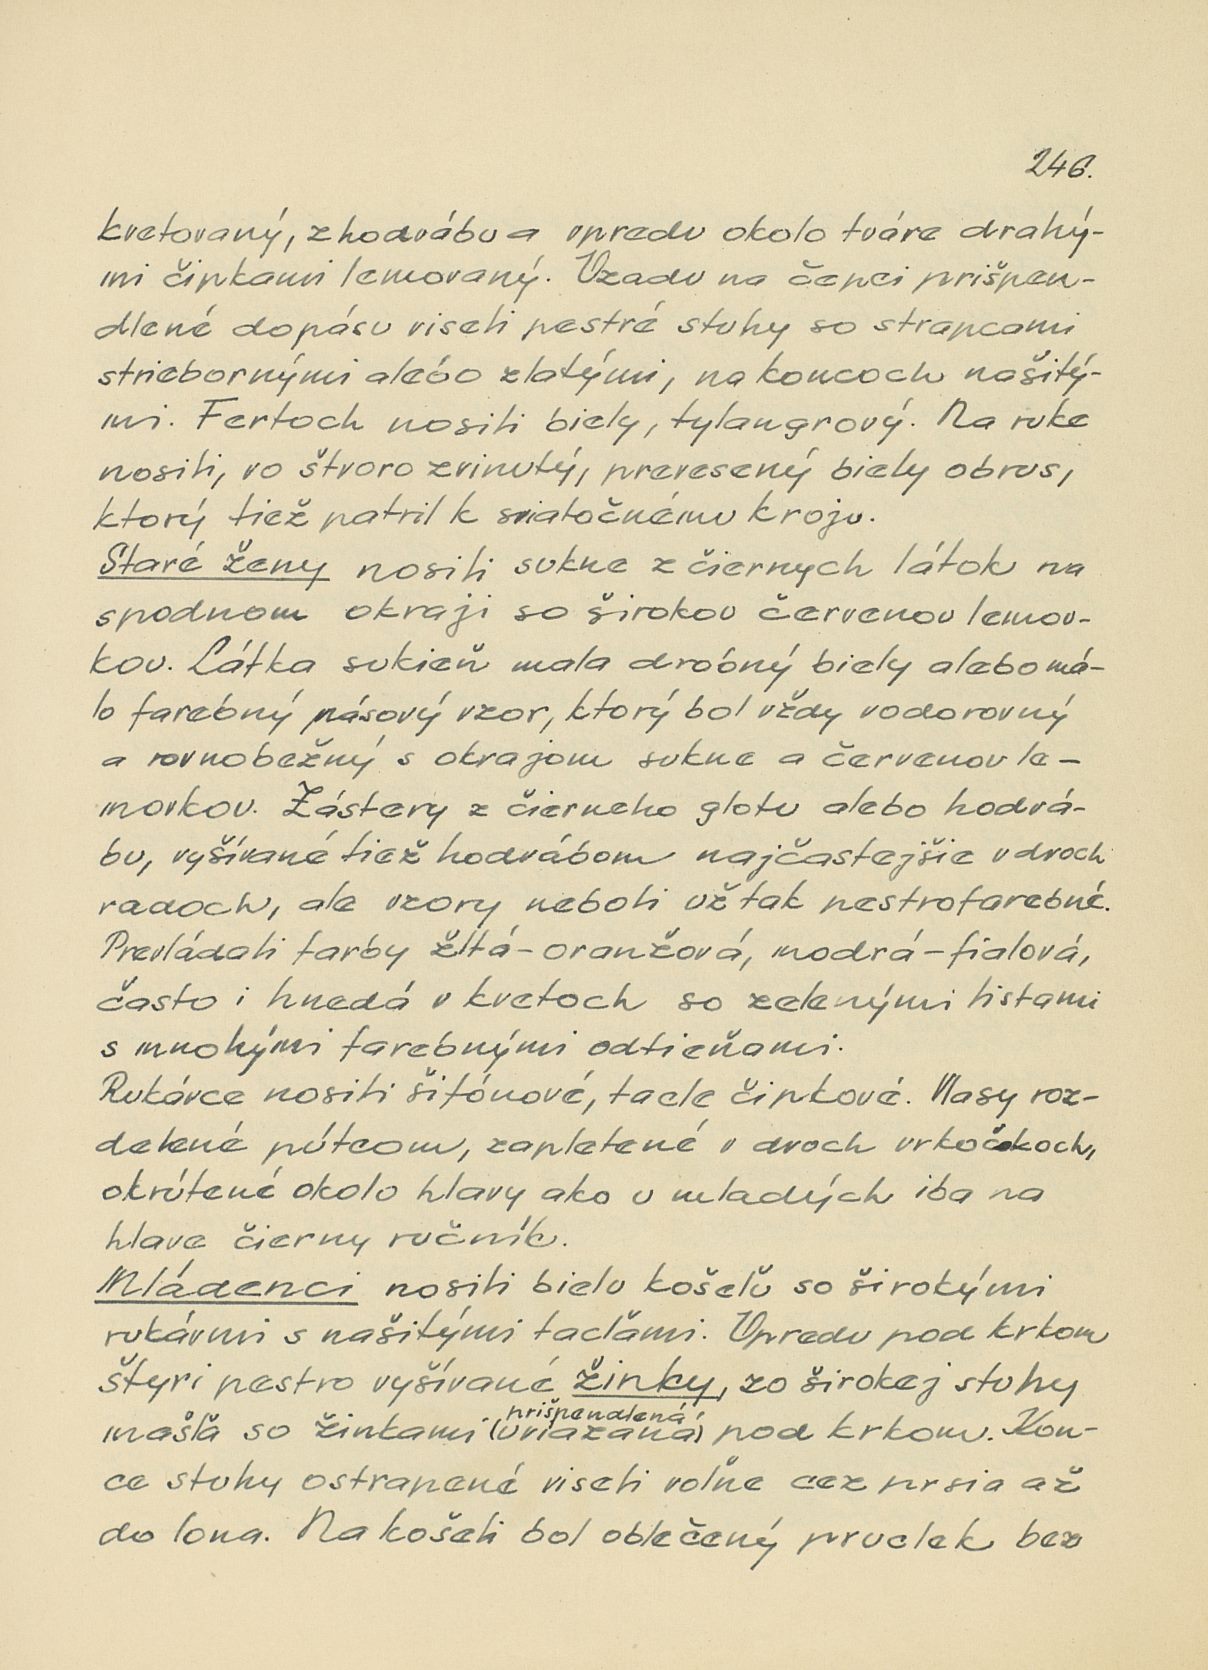 246.
kvetovaný, z hodvábu a vpredu okolo tváre drahý-
mi čipkami lemovaný. Vzadu na čepci prišpen-
dlené dopásu viseli pestré stuhy so strapcami
striebornými alebo zlatými, na koncoch našitý-
mi. Fertoch nosili biely, tylangrový. Na ruke
nosili, vo štvoro zvinutý, prevesený biely obrus,
ktorý tiež patril k sviatočnému kroju.
Staré ženy nosili sukne z čiernych látok na
spodnom okraji so širokou červenou lemov-
kou. Látka sukieň mala drobný biely alebo má-
lo farebný pásový vzor, ktorý bol vždy vodorovný
a rovnobežný s okrajom sukne a červenou le-
movkou. Zástery z čierneho glotu alebo hodvá-
bu, vyšívané tiež hodvábom najčastejšie v dvoch
radoch, ale vzory neboli už tak pestrofarebné.
Prevládali farby žltá-oranžová, modrá-fialová,
často i hnedá v kvetoch so zelenými listami
s mnohými farebnými odtieňami.
Rukávce nosili šifónové, tacle čipkové. Vlasy roz-
delené pútcom, zapletené v dvoch vrkočkoch,
okrútené okolo hlavy ako u mladých iba na
hlave čierny ručník.
Mládenci nosili bielu košeľu so širokými
rukávmi s našitými tacľami. Vpredu pod krkom
štyri pestro vyšívané žinky, zo širokej stuhy
prišpendlená
mašľa so žinkami (uviazaná) pod krkom. Kon-
ce stuhy ostrapené viseli voľne cez prsia až
do lona. Na košeli bol oblečený pruclek bez